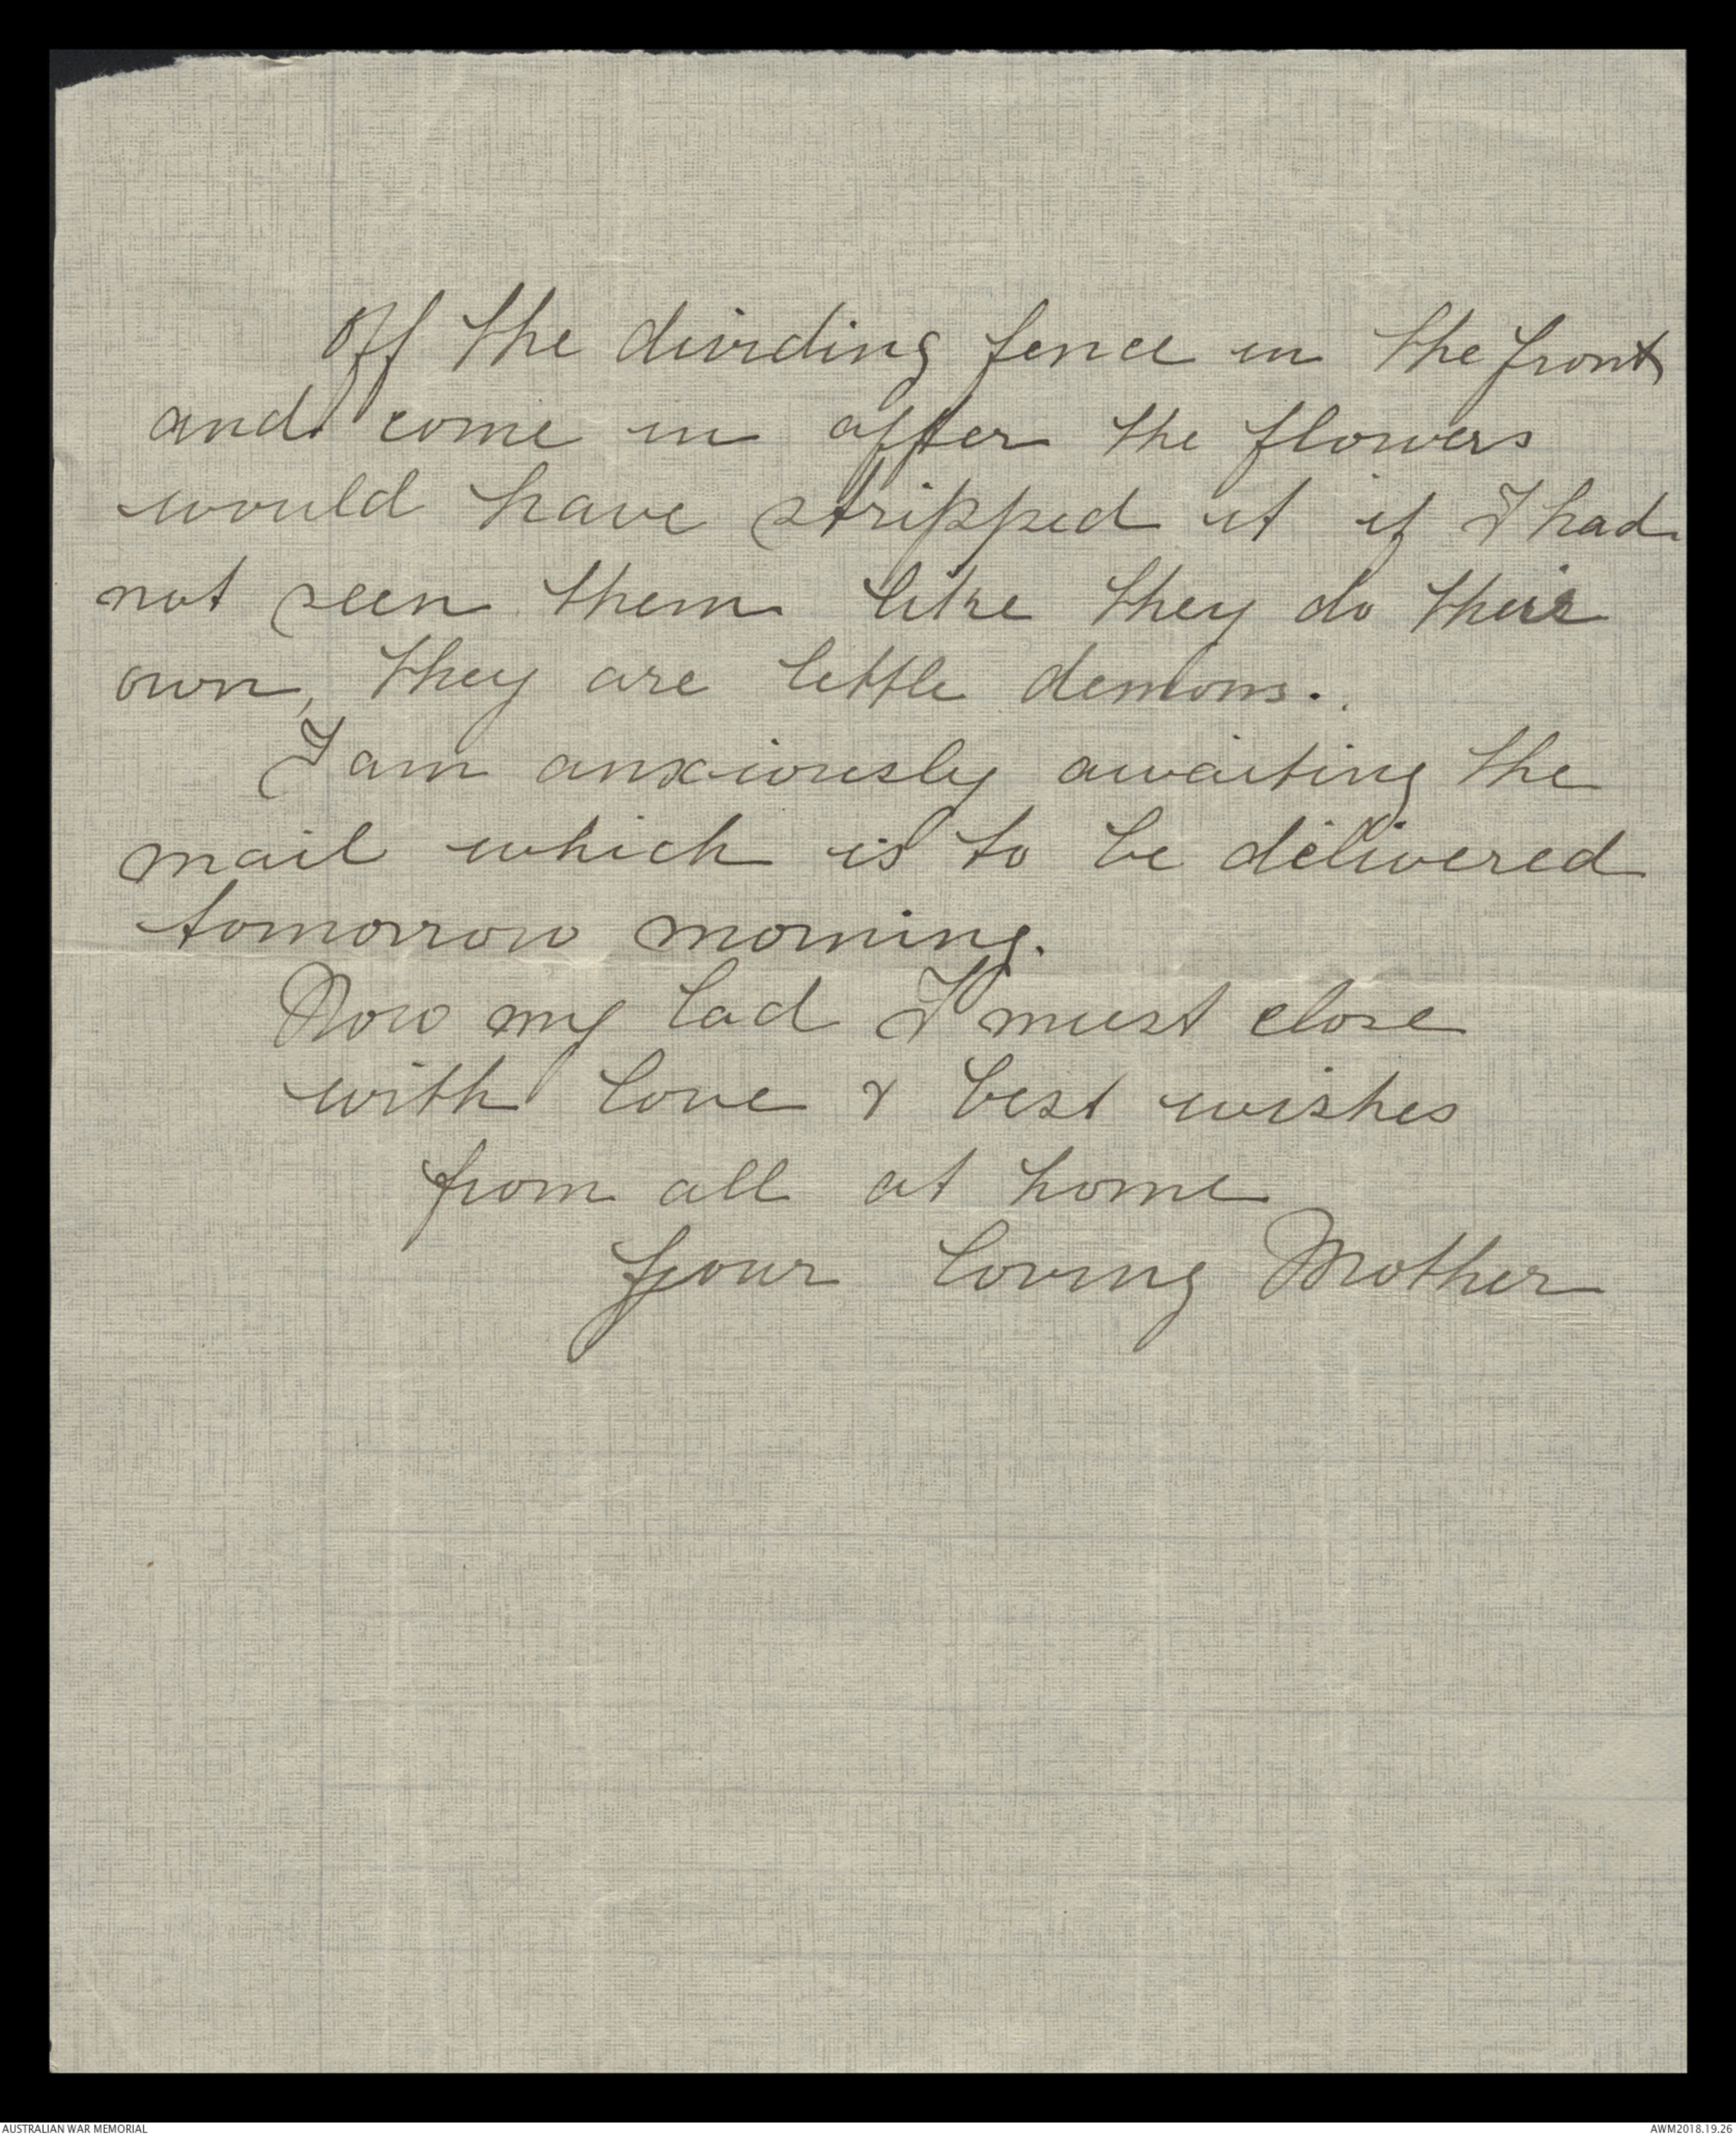 off the dividing fence in the front
and come in after the flowers
would have stripped it if I had
not seen them like they do their
own, they are little demons.
I am anxiously awaiting the
mail which is to be delivered
tomorrow morning.
Now my lad I must close
with love & best wishes
from all at home
Your loving Mother
AUSTRALIAN WAR MEMORIAL
AWM2018.19.26